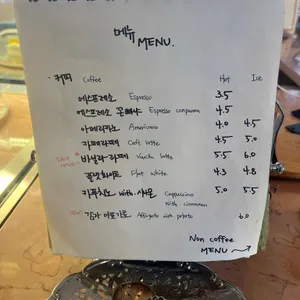 메뉴
MENU.
커피 Coffee Hot Ice
에스프레소 Espresso 3.5
에스프레소 꼰빠냐 Espresso conpanna 4.5
아메리카노 Americano 4.0 4.5
카페라떼 Cafe latte 4.5 5.0
바닐라 라떼 Vanilla latte 5.5 6.0
플랫화이트 Flat white 4.3 4.8
카푸치노 with. 시나몬 Cappuccino With cinnamon 5.0 5.5
감자 아포가토 Affogato with potato 6.0
Non coffee
MENU →